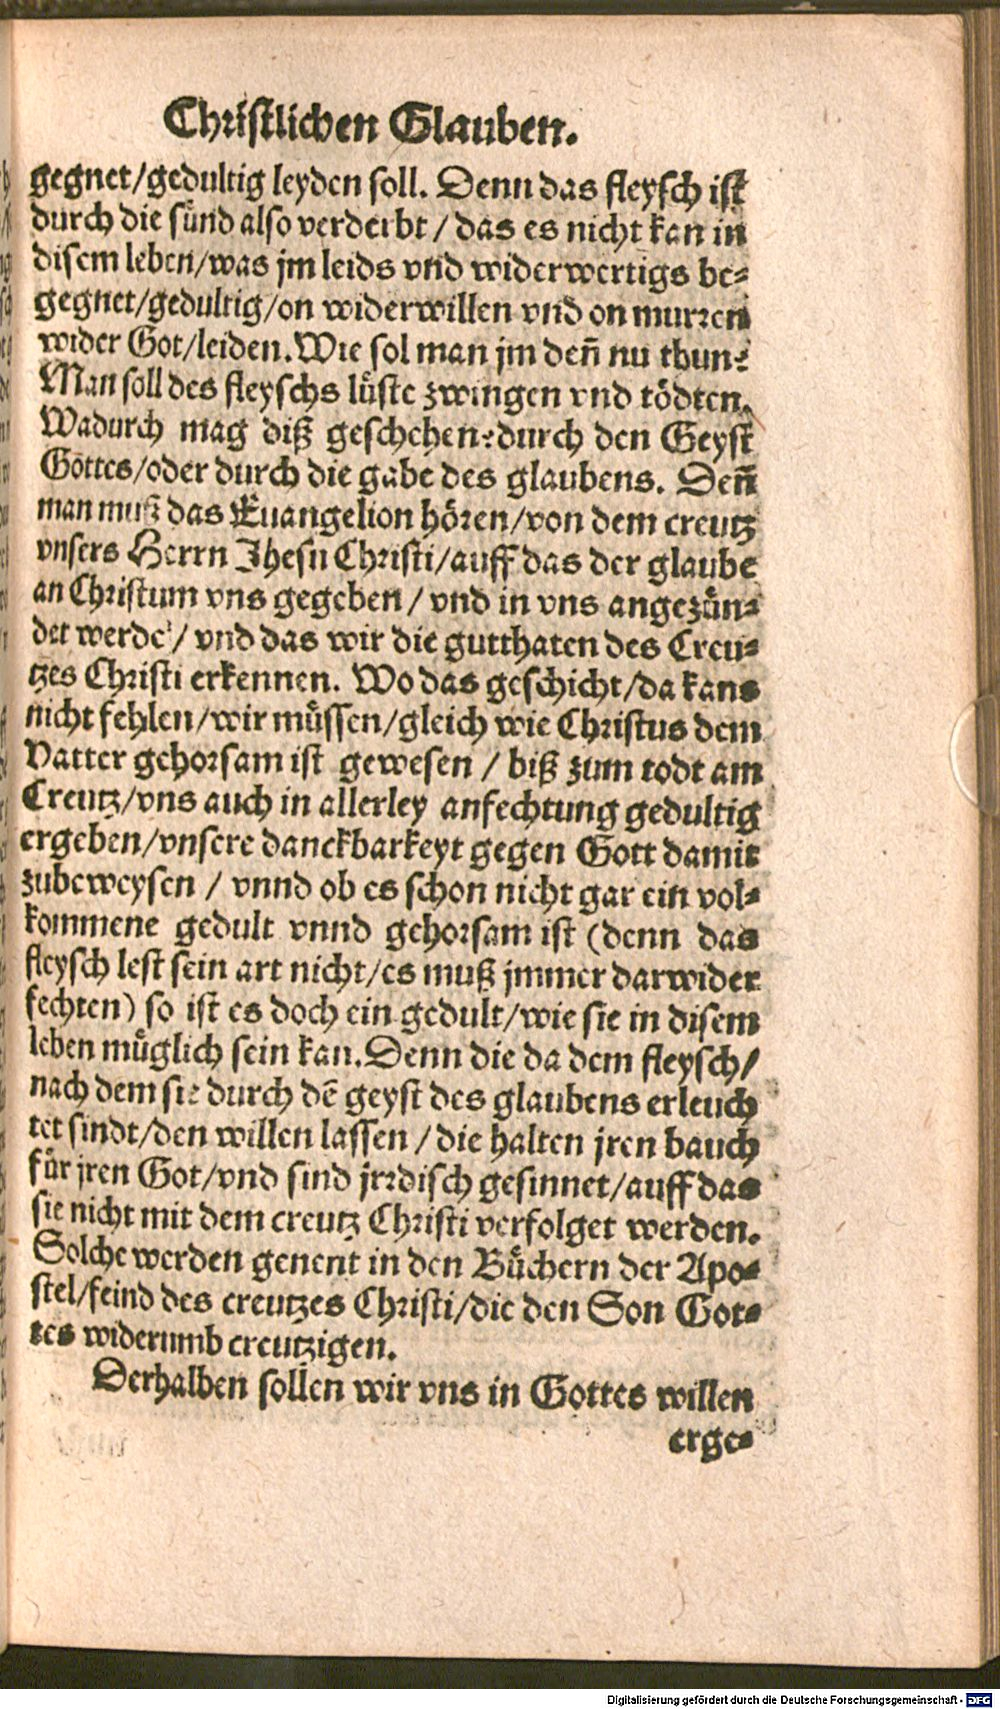 Christlichen Glauben.
gegnet/gedultig leyden soll. Denn das fleysch ist
durch die sünd also verderbt / das es nicht kan in
disem leben/was jm leids vnd widerwertigs be-
gegnet/gedultig/on widerwillen vnd on murren
wider Got/leiden. Wie sol man jm deñ nu thun?
Man soll des fleyschs lüste zwingen vnd tödten.
Wadurch mag diß geschehen? durch den Geyst
Gottes/oder durch die gabe des glaubens. Deñ
man muß das Euangelion hören/von dem creutz
vnsers Herrn Jhesu Christi/auff das der glaube
an Christum vns gegeben / vnd in vns angezün-
det werde / vnd das wir die gutthaten des Creu-
tzes Christi erkennen. Wo das geschicht/da kans
nicht fehlen/wir müssen/gleich wie Christus dem
Vatter gehorsam ist gewesen / biß zum todt am
Creutz/vns auch in allerley anfechtung gedultig
ergeben/vnsere danckbarkeyt gegen Gott damit
zubeweysen / vnnd ob es schon nicht gar ein vol-
kommene gedult vnnd gehorsam ist (denn das
fleysch lest sein art nicht/es muß jmmer darwider
fechten) so ist es doch ein gedult/wie sie in disem
leben müglich sein kan. Denn die da dem fleysch/
nach dem sie durch dē geyst des glaubens erleuch
tet sindt/den willen lassen / die halten jren bauch
für jren Got/vnd sind jrrdisch gesinnet/auff das
sie nicht mit dem creutz Christi verfolget werden.
Solche werden genent in den Büchern der Apo-
stel/feind des creutzes Christi/die den Son Got-
tes widerumb creutzigen.
Derhalben sollen wir vns in Gottes willen
erge-
Digitalisierung gefördert durch die Deutsche Forschungsgemeinschaft - DFG